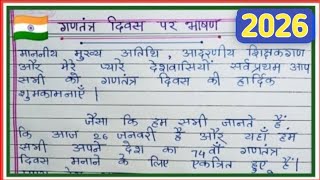 2026
गणतंत्र दिवस पर भाषण
माननीय मुख्य अतिथि, आदरणीय शिक्षकगण
और मेरे प्यारे देशवासियों सर्वप्रथम आप
सभी को गणतंत्र दिवस की हार्दिक
शुभकामनाएँ |
जैसा कि हम सभी जानते हैं
कि आज 26 जनवरी है और यहाँ हम
सभी अपने देश का 74वाँ गणतंत्र
दिवस मनाने के लिए एकत्रित हुए हैं|